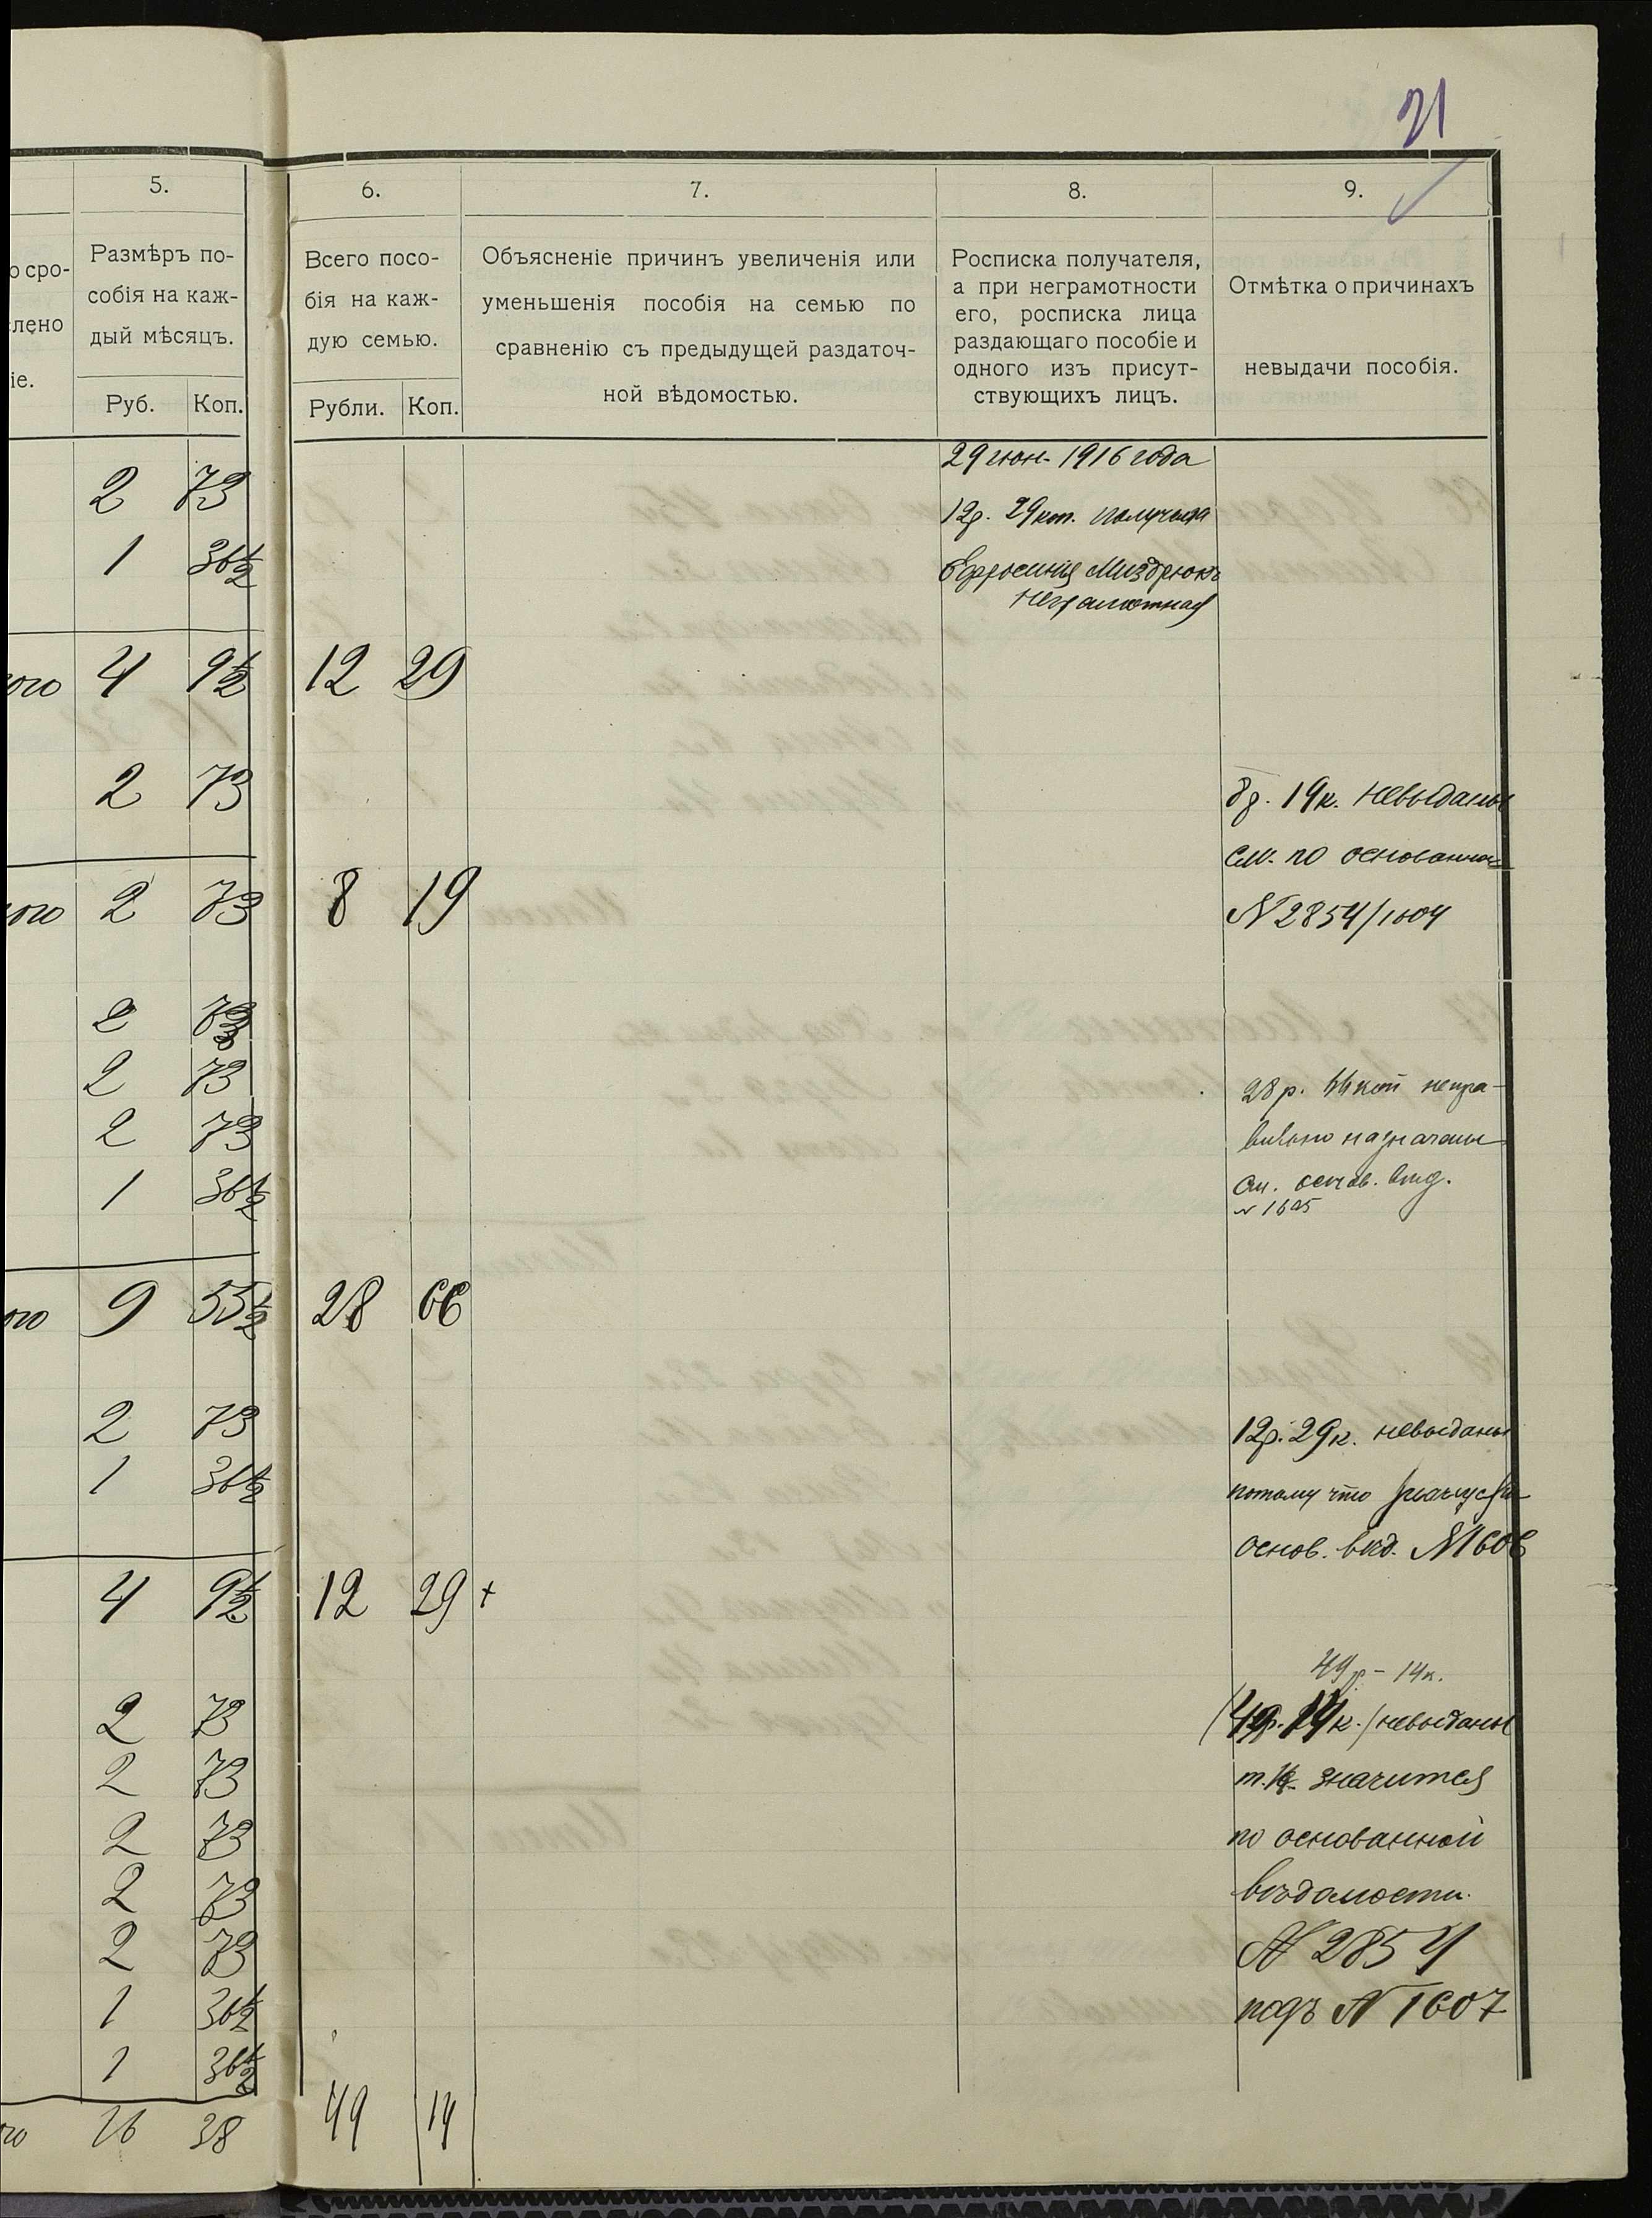 21
5. 6. 7. 8. 9.
о сро-
лено
іе.
Размѣръ по-
собія на каж-
дый мѣсяцъ.
Руб. Коп.
Всего посо-
бія на каж-
дую семью.
Рубли. Коп.
Объясненіе причинъ увеличенія или
уменьшенія пособія на семью по
сравненію съ предыдущей раздаточ-
ной вѣдомостью.
Росписка получателя,
а при неграмотности
его, росписка лица
раздающаго пособіе и
одного изъ присут-
ствующихъ лицъ.
Отмѣтка о причинахъ
невыдачи пособія.
29 июн. 1916 года
2 73 12р. 29 коп. получила
1 36 1/2 Ефросинія Миздрюкъ
неграмотная
ого 4 9 1/2 12 29
2 73 8р. 19к. невыданы
см. по основанна
ого 2 73 8 19 N 2854/1604
2 73
2 73 28 р. коп непра-
2 73 вильно назначены
1 36 1/2 см. основ. вѣд.
N 1605
ого 9 55 1/2 28 66
2 73 12р. 29к. невыданы
1 36 1/2 потому что
основ. вѣд. N 1606
4 9 1/2 12 29 +
49р - 14к.
2 73 (49р. 14к.) невыданы
2 73 т.к. значится
2 73 по основанной
2 73 вѣдомости.
2 73 N 2854
1 36 1/2 подъ N 1607
1 36 1/2
ого 16 38 49 14